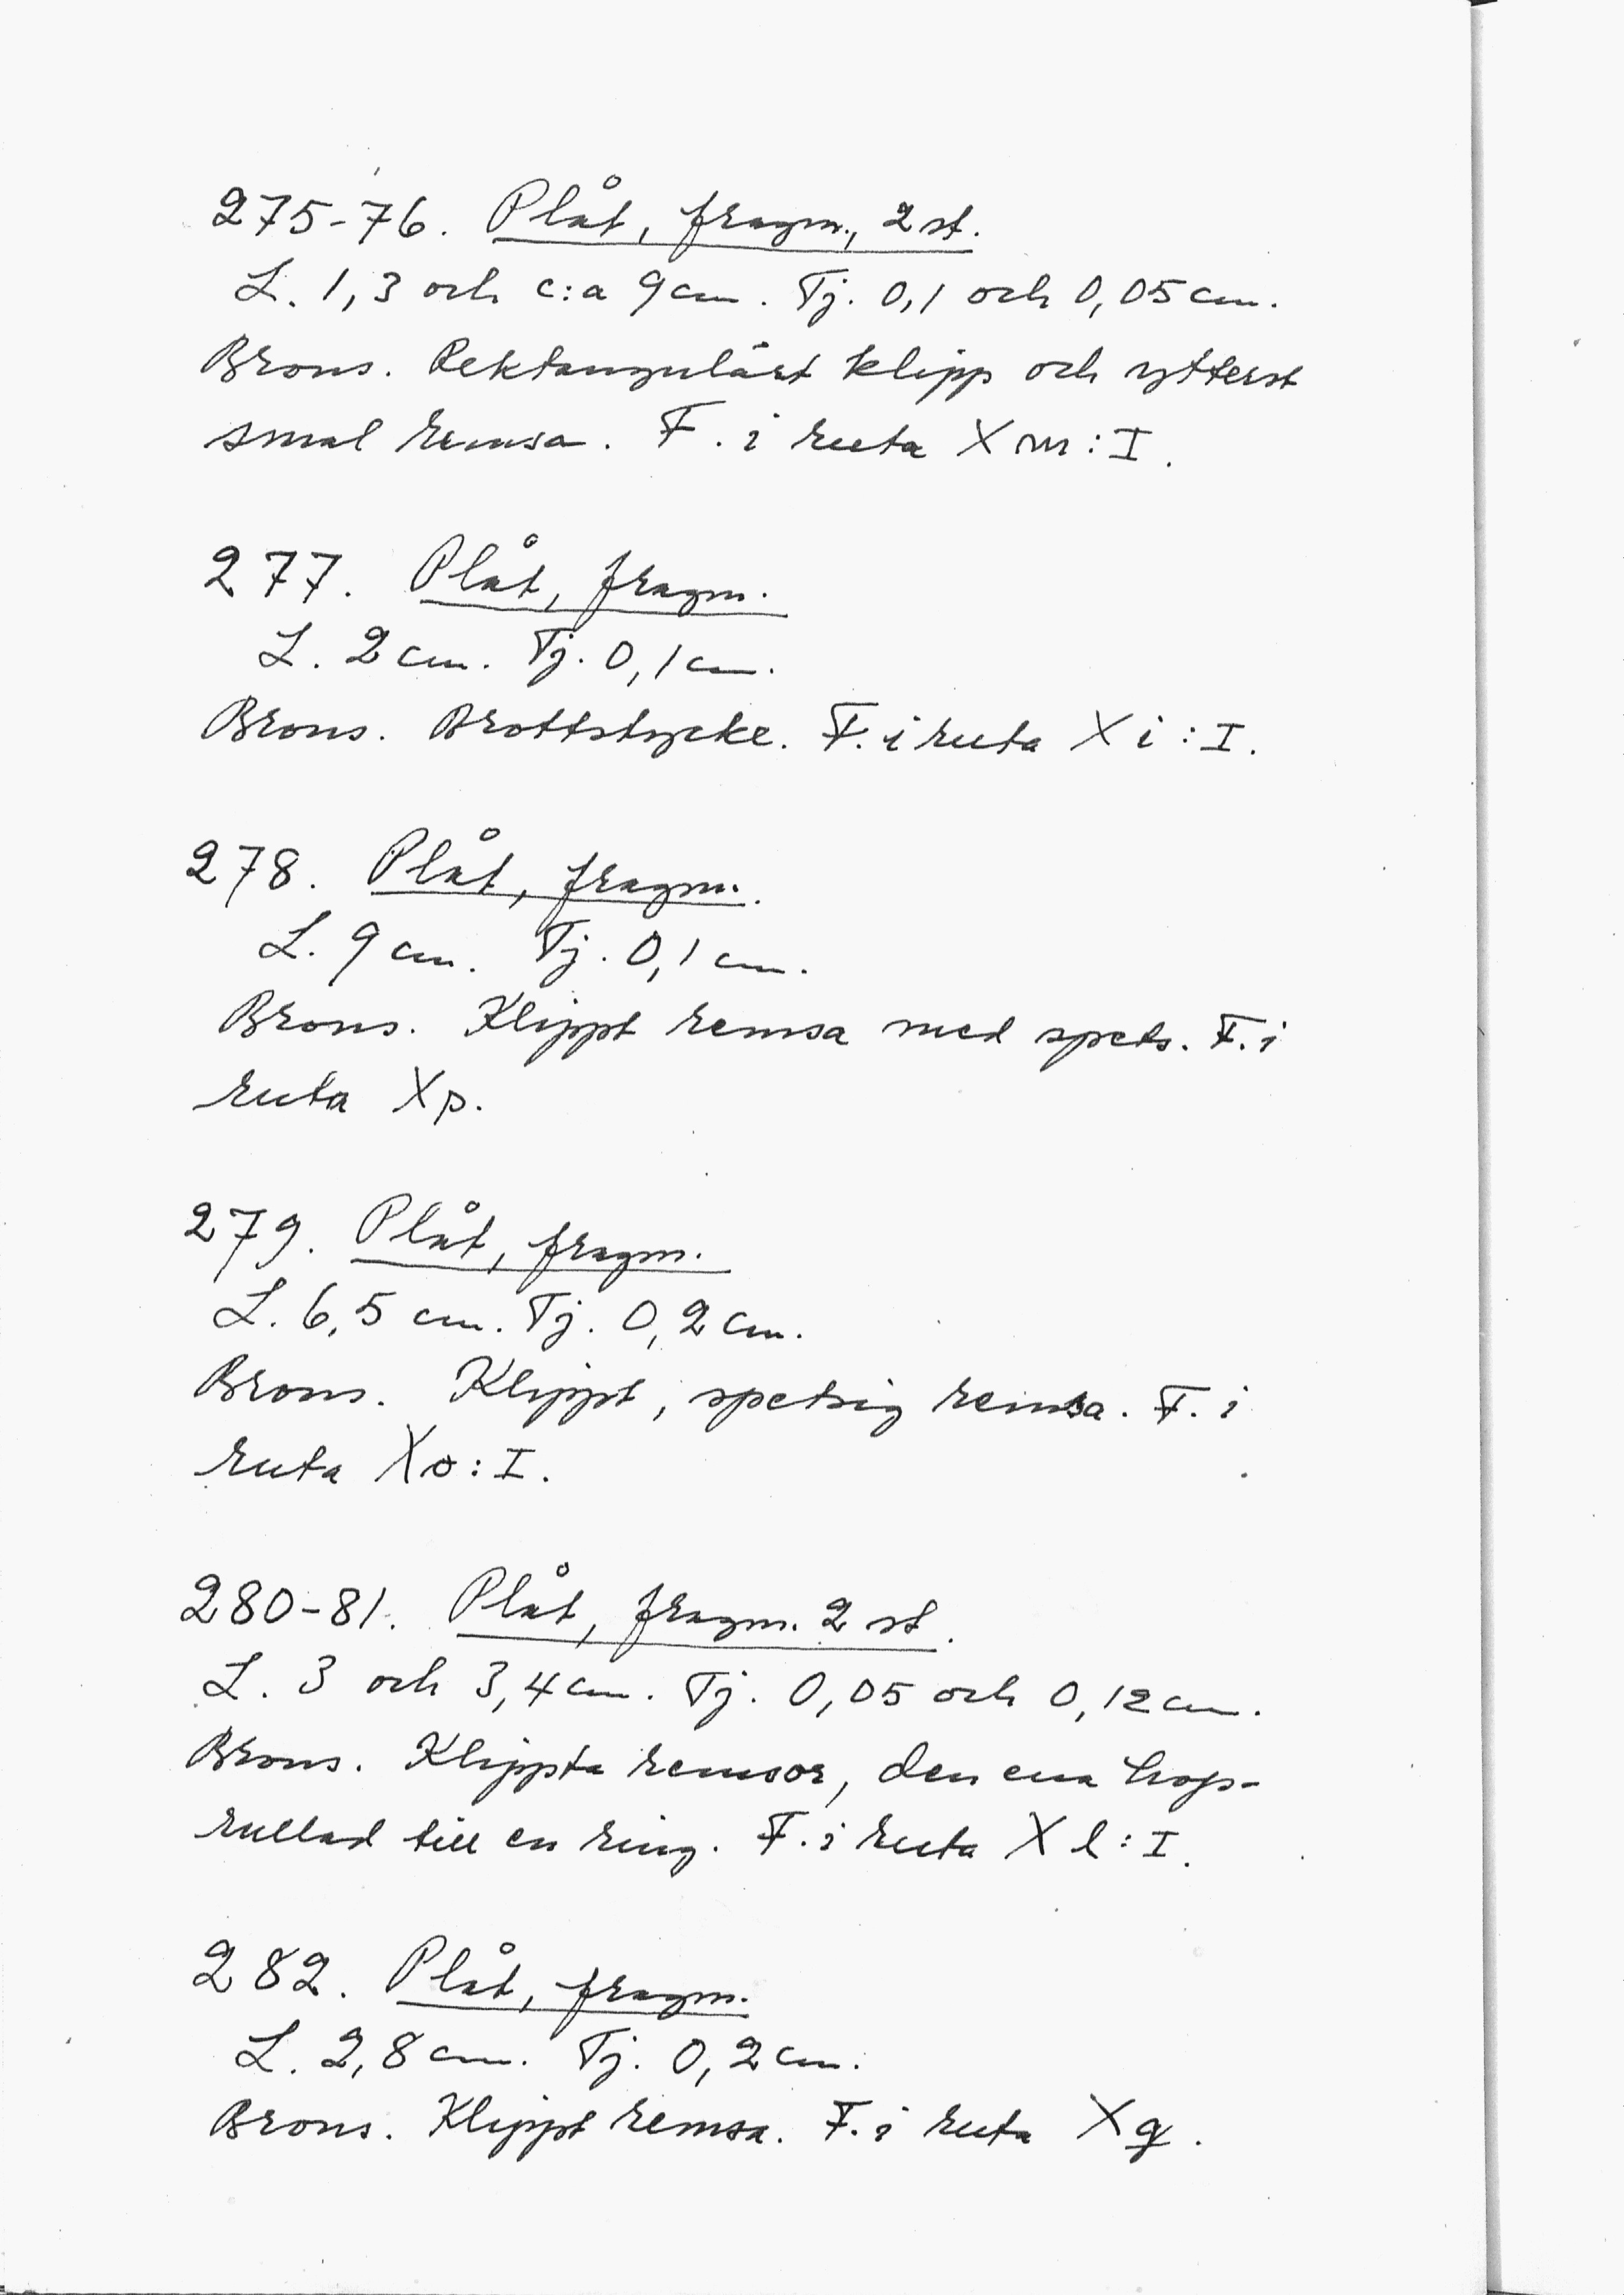 275-76. Plåt, fragm., 2 st.
L. 1,3 och c:a 9 cm. Tj. 0,1 och 0,05 cm.
Brons. Rektangulärt klipp och ytterst
smal remsa. F. i ruta X m : I.
277. Plåt, fragm.
L. 2 cm. Tj. 0,1 cm.
Brons. Brottstycke. F. i ruta X i : I.
278. Plåt, fragm.
L. 9 cm. Tj. 0,1 cm.
Brons. Klippt remsa med spets. F. i
ruta Xp.
279. Plåt, fragm.
L. 6,5 cm. Tj. 0,2 cm.
Brons. Klippt, spetsig remsa. F. i
ruta Xo : I.
280-81. Plåt, fragm. 2 st.
L. 3 och 3,4 cm. Tj. 0,05 och 0,12 cm.
Brons. Klippta remsor, den ena hop-
rullad till en ring. F. i ruta X l : I.
282. Plåt, fragm.
L. 2,8 cm. Tj. 0,2 cm.
Brons. Klippt remsa. F. i ruta Xg.